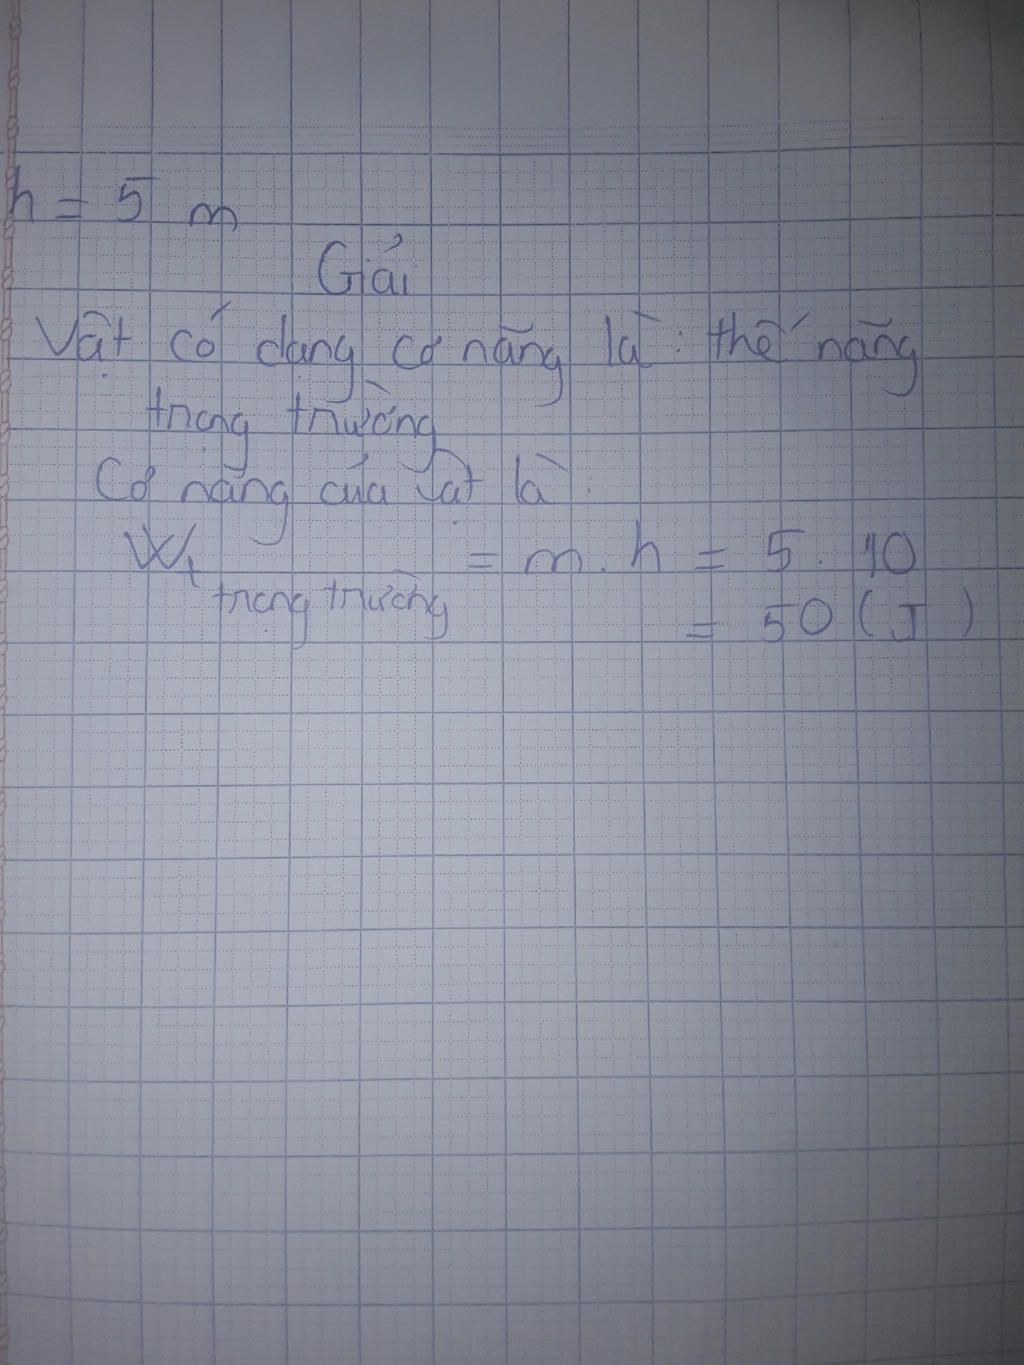 h = 5 m
Giải
Vật có dạng cơ năng là : thế năng
trọng trường
Cơ năng của vật là :
Wt trọng trường = m . h = 5 . 10
= 50 ( J )